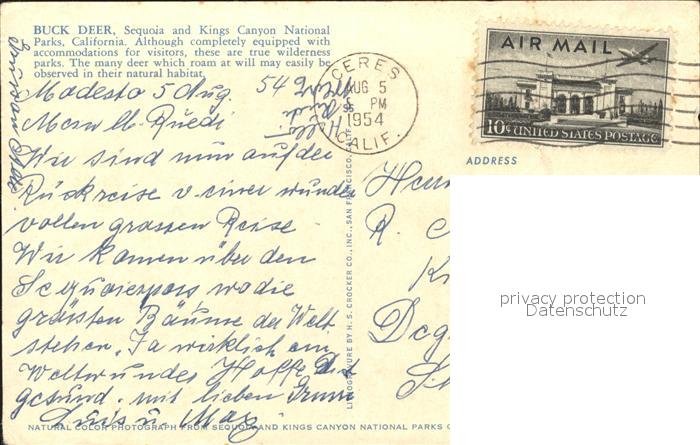 BUCK DEER, Sequoia and Kings Canyon National
Parks, California. Although completely equipped with
accommodations for visitors, these are true wilderness
parks. The many deer which roam at will may easily be
observed in their natural habitat.
Modesto 5 Aug. 54
Mein lb. Ruedi
Wir sind nun auf der
Rückreise v. einer wunder
vollen grossen Reise
Wir kamen über den
Sequoierpass wo die
grössten Bäume der Welt
stehen. Ja wirklich ein
Weltwunder Hoffe
gesund. mit lieben
Luis u. Max
CERES
AUG 5
PM
1954
CALIF.
AIR MAIL
10¢ UNITED STATES POSTAGE
ADDRESS
R.
LITHOGRAPHED BY H. S. CROCKER CO., INC., SAN FRANCISCO, CALIF.
privacy protection
Datenschutz
NATURAL COLOR PHOTOGRAPH FROM SEQUOIA AND KINGS CANYON NATIONAL PARKS